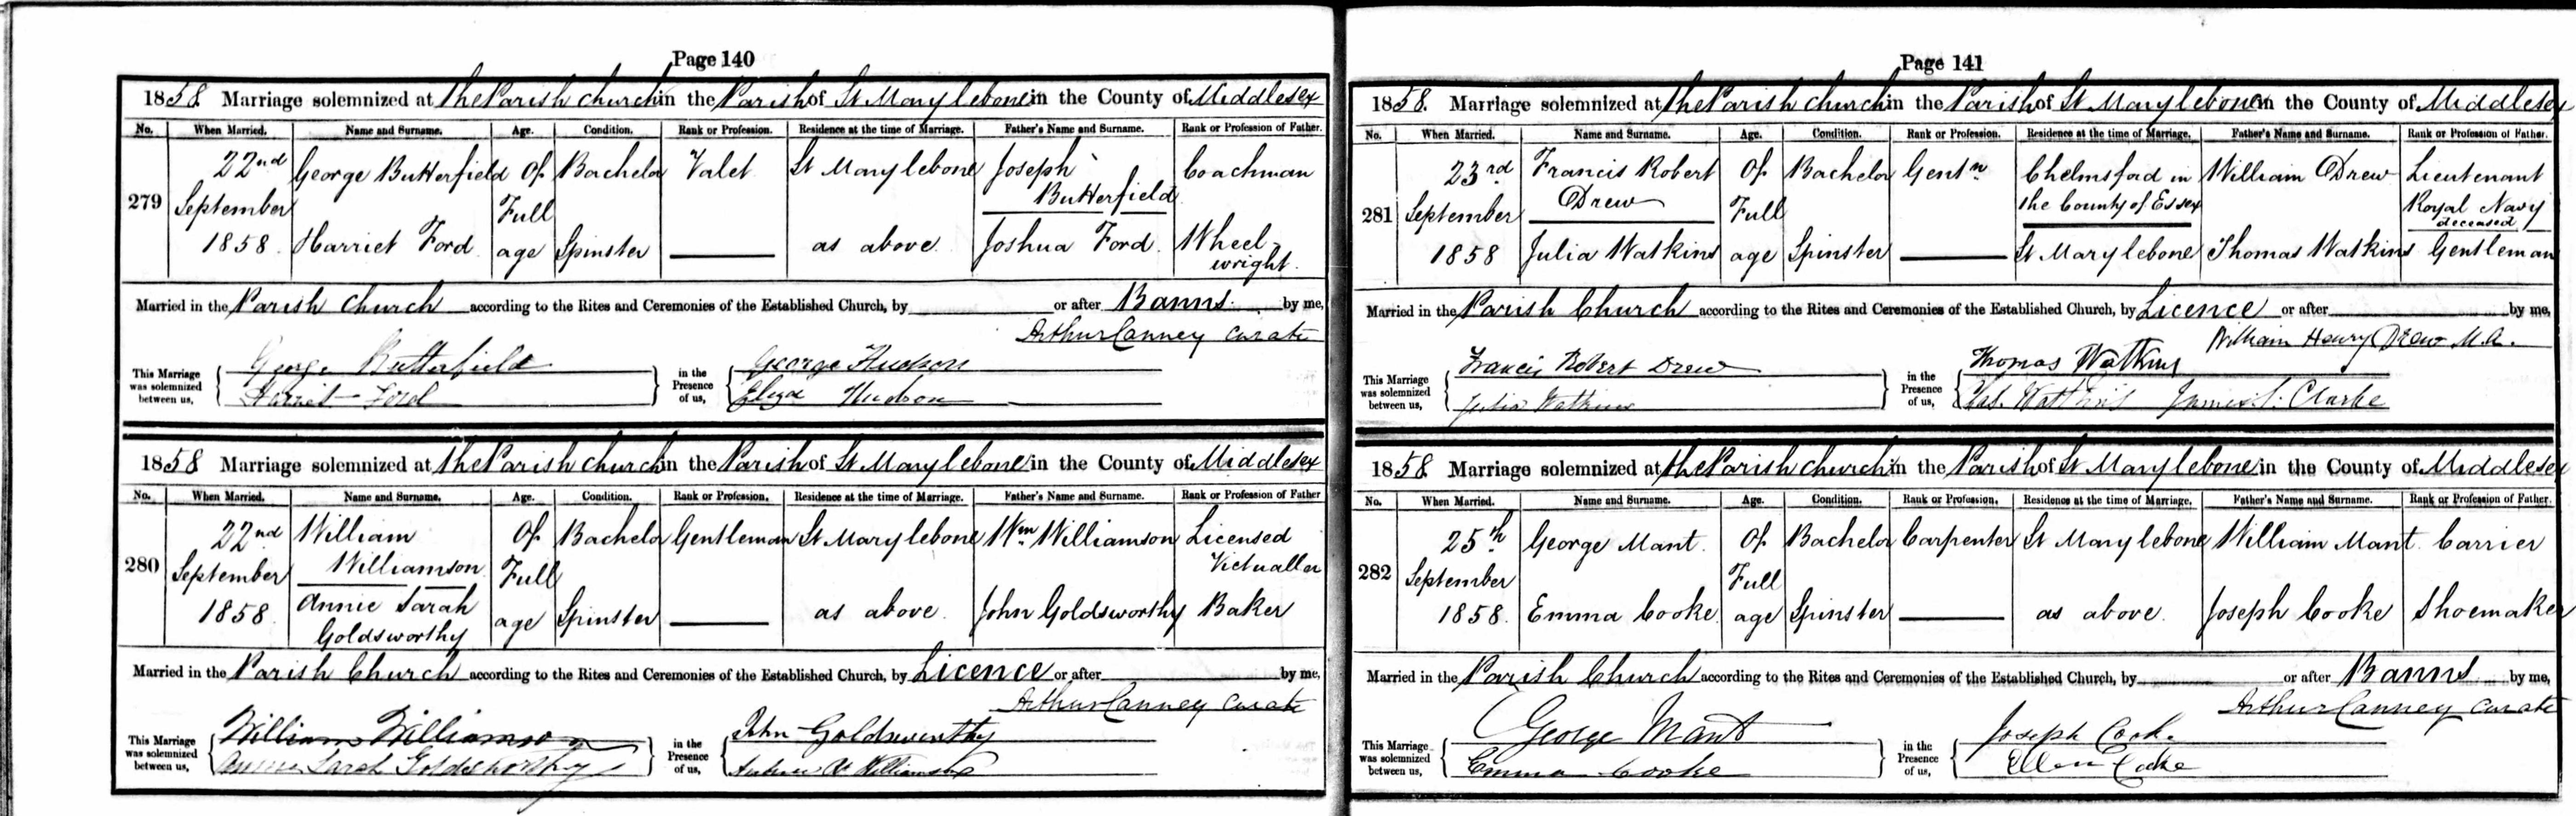 Page 140
1858 Marriage solemnized at the Parish church in the Parish of St Marylebone in the County of Middlesex
No. When Married. Name and Surname. Age. Condition. Rank or Profession. Residence at the time of Marriage. Father's Name and Surname. Rank or Profession of Father.
279 22nd September 1858 George Butterfield Of Full age Bachelor Valet St Marylebone Joseph Butterfield Coachman
Harriet Ford Spinster as above Joshua Ford Wheelwright
Married in the Parish Church according to the Rites and Ceremonies of the Established Church, by or after Banns by me,
Arthur Canney Curate
This Marriage was solemnized between us, George Butterfield Harriet Ford in the Presence of us, George Hudson Eliza Hudson
1858 Marriage solemnized at the Parish church in the Parish of St Marylebone in the County of Middlesex
No. When Married. Name and Surname. Age. Condition. Rank or Profession. Residence at the time of Marriage. Father's Name and Surname. Rank or Profession of Father
280 22nd September 1858 William Williamson Of Full age Bachelor Gentleman St Marylebone Wm Williamson Licensed Victualler
Annie Sarah Goldsworthy Spinster as above John Goldsworthy Baker
Married in the Parish Church according to the Rites and Ceremonies of the Established Church, by Licence or after by me,
Arthur Canney Curate
This Marriage was solemnized between us, William Williamson Annie Sarah Goldsworthy in the Presence of us, John Goldsworthy Williamson
Page 141
1858. Marriage solemnized at the Parish church in the Parish of St Marylebone in the County of Middlesex
No. When Married. Name and Surname. Age. Condition. Rank or Profession. Residence at the time of Marriage. Father's Name and Surname. Rank or Profession of Father.
281 23rd September 1858 Francis Robert Drew Of Full age Bachelor Gentn Chelmsford in the County of Essex William Drew Lieutenant Royal Navy deceased
Julia Watkins Spinster St Marylebone Thomas Watkins Gentleman
Married in the Parish Church according to the Rites and Ceremonies of the Established Church, by Licence or after by me,
William Henry Drew M.A.
This Marriage was solemnized between us, Francis Robert Drew Julia Watkins in the Presence of us, Thomas Watkins Watkins James Clarke
1858 Marriage solemnized at the Parish church in the Parish of St Marylebone in the County of Middlesex
No. When Married. Name and Surname. Age. Condition. Rank or Profession. Residence at the time of Marriage. Father's Name and Surname. Rank or Profession of Father.
282 25th September 1858 George Mant Of Full age Bachelor Carpenter St Marylebone William Mant Carrier
Emma Cooke Spinster as above Joseph Cooke Shoemaker
Married in the Parish Church according to the Rites and Ceremonies of the Established Church, by or after Banns by me,
Arthur Canney Curate
This Marriage was solemnized between us, George Mant Emma Cooke in the Presence of us, Joseph Cooke Ellen Cooke